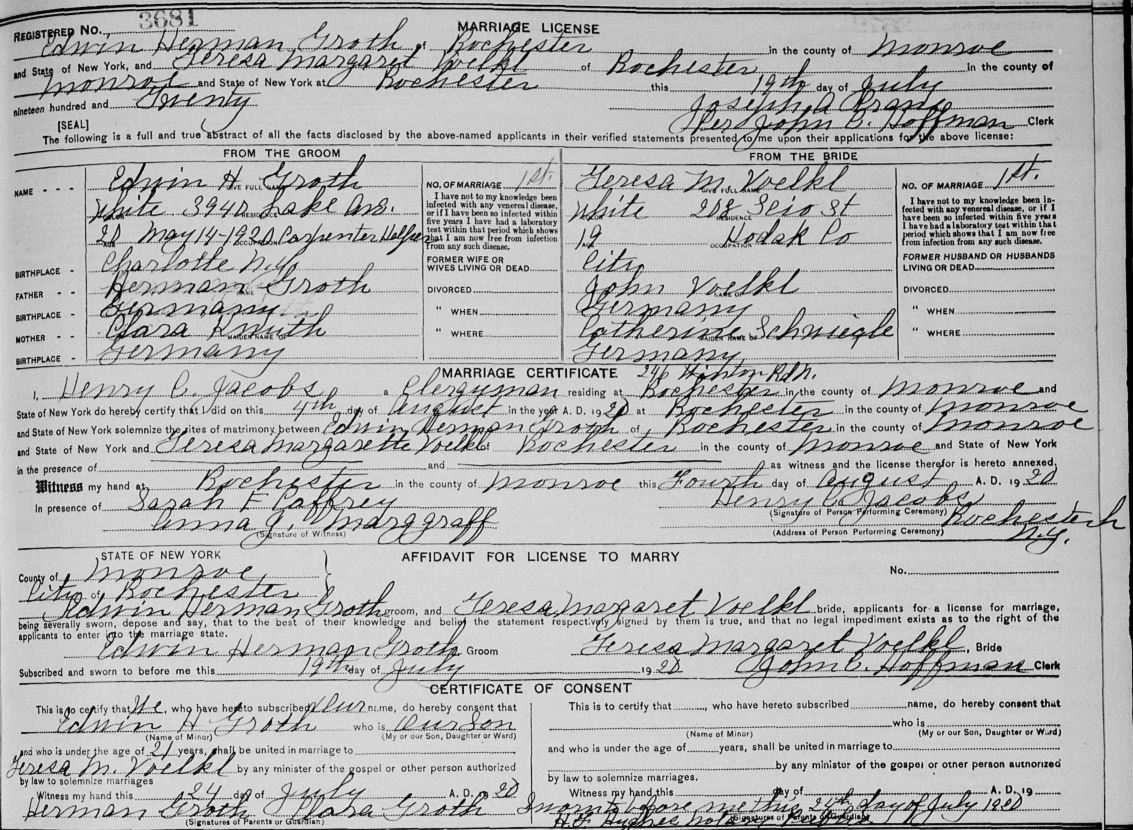 REGISTERED No. 3681 MARRIAGE LICENSE
Edwin Herman Groth of Rochester in the county of Monroe
and State of New York, and Teresa Margaret Voelkl of Rochester in the county of
Monroe and State of New York at Rochester this 19th day of July
nineteen hundred and Twenty Joseph A Crane
[SEAL] Per John C. Hoffman Clerk
The following is a full and true abstract of all the facts disclosed by the above-named applicants in their verified statements presented to me upon their applications for the above license:
FROM THE GROOM FROM THE BRIDE
NAME - - - Edwin H. Groth GIVE FULL NAME NO. OF MARRIAGE 1st. Teresa M. Voelkl GIVE FULL NAME NO. OF MARRIAGE 1st.
White 3940 Lake Ave. White 202 Scio St RESIDENCE
I have not to my knowledge been infected with any venereal disease, or if I have been so infected within five years I have had a laboratory test within that period which shows that I am now free from infection from any such disease.
I have not to my knowledge been infected with any venereal disease, or if I have been so infected within five years I have had a laboratory test within that period which shows that I am now free from infection from any such disease.
20 May 14-1920 Carpenter Helper 19 OCCUPATION Kodak Co
BIRTHPLACE - - Charlotte N.Y. FORMER WIFE OR WIVES LIVING OR DEAD City FORMER HUSBAND OR HUSBANDS LIVING OR DEAD
FATHER - - Herman Groth DIVORCED John Voelkl DIVORCED
BIRTHPLACE - - Germany " WHEN Germany " WHEN
MOTHER - - Clara Knuth MAIDEN NAME OF " WHERE Catherine Schwiegle MAIDEN NAME OF " WHERE
BIRTHPLACE - Germany Germany
MARRIAGE CERTIFICATE 246 Winton Rd N.
I, Henry C. Jacobs a Clergyman residing at Rochester in the county of Monroe and
State of New York do hereby certify that I did on this 4th day of August in the year A. D. 1920 at Rochester in the county of Monroe
and State of New York solemnize the rites of matrimony between Edwin Herman Groth of Rochester in the county of Monroe
and State of New York and Teresa Margarette Voelkl of Rochester in the county of Monroe and State of New York
in the presence of and as witness and the license therefor is hereto annexed.
Witness my hand at Rochester in the county of Monroe this Fourth day of August A. D. 1920
In presence of Sarah F Caffrey Henry C. Jacobs
(Signature of Person Performing Ceremony)
Anna J. Marggraff Rochester
(Signature of Witness) (Address of Person Performing Ceremony) N.Y.
STATE OF NEW YORK AFFIDAVIT FOR LICENSE TO MARRY
County of Monroe No.
City of Rochester
Edwin Herman Groth groom, and Teresa Margaret Voelkl bride, applicants for a license for marriage,
being severally sworn, depose and say, that to the best of their knowledge and belief the statement respectively signed by them is true, and that no legal impediment exists as to the right of the
applicants to enter into the marriage state.
Edwin Herman Groth Groom Teresa Margaret Voelkl, Bride
Subscribed and sworn to before me this 19th day of July 1920 John C. Hoffman Clerk
CERTIFICATE OF CONSENT
This is to certify that We, who have hereto subscribed Our name, do hereby consent that
Edwin H Groth who is Our Son
(Name of Minor) (My or our Son, Daughter or Ward)
and who is under the age of 21 years, shall be united in marriage to
Teresa M. Voelkl by any minister of the gospel or other person authorized
by law to solemnize marriages
Witness my hand this 24 day of July A. D. 1920
Herman Groth Clara Groth
(Signatures of Parents or Guardian)
This is to certify that , who have hereto subscribed name, do hereby consent that
who is
(Name of Minor) (My or our Son, Daughter or Ward)
and who is under the age of years, shall be united in marriage to
by any minister of the gospel or other person authorized
by law to solemnize marriages.
Witness my hand this day of A. D. 19
Sworn to before me this 24th day of July 1920
H.F. Hughes Notary Public
(Signatures of Parents or Guardian)